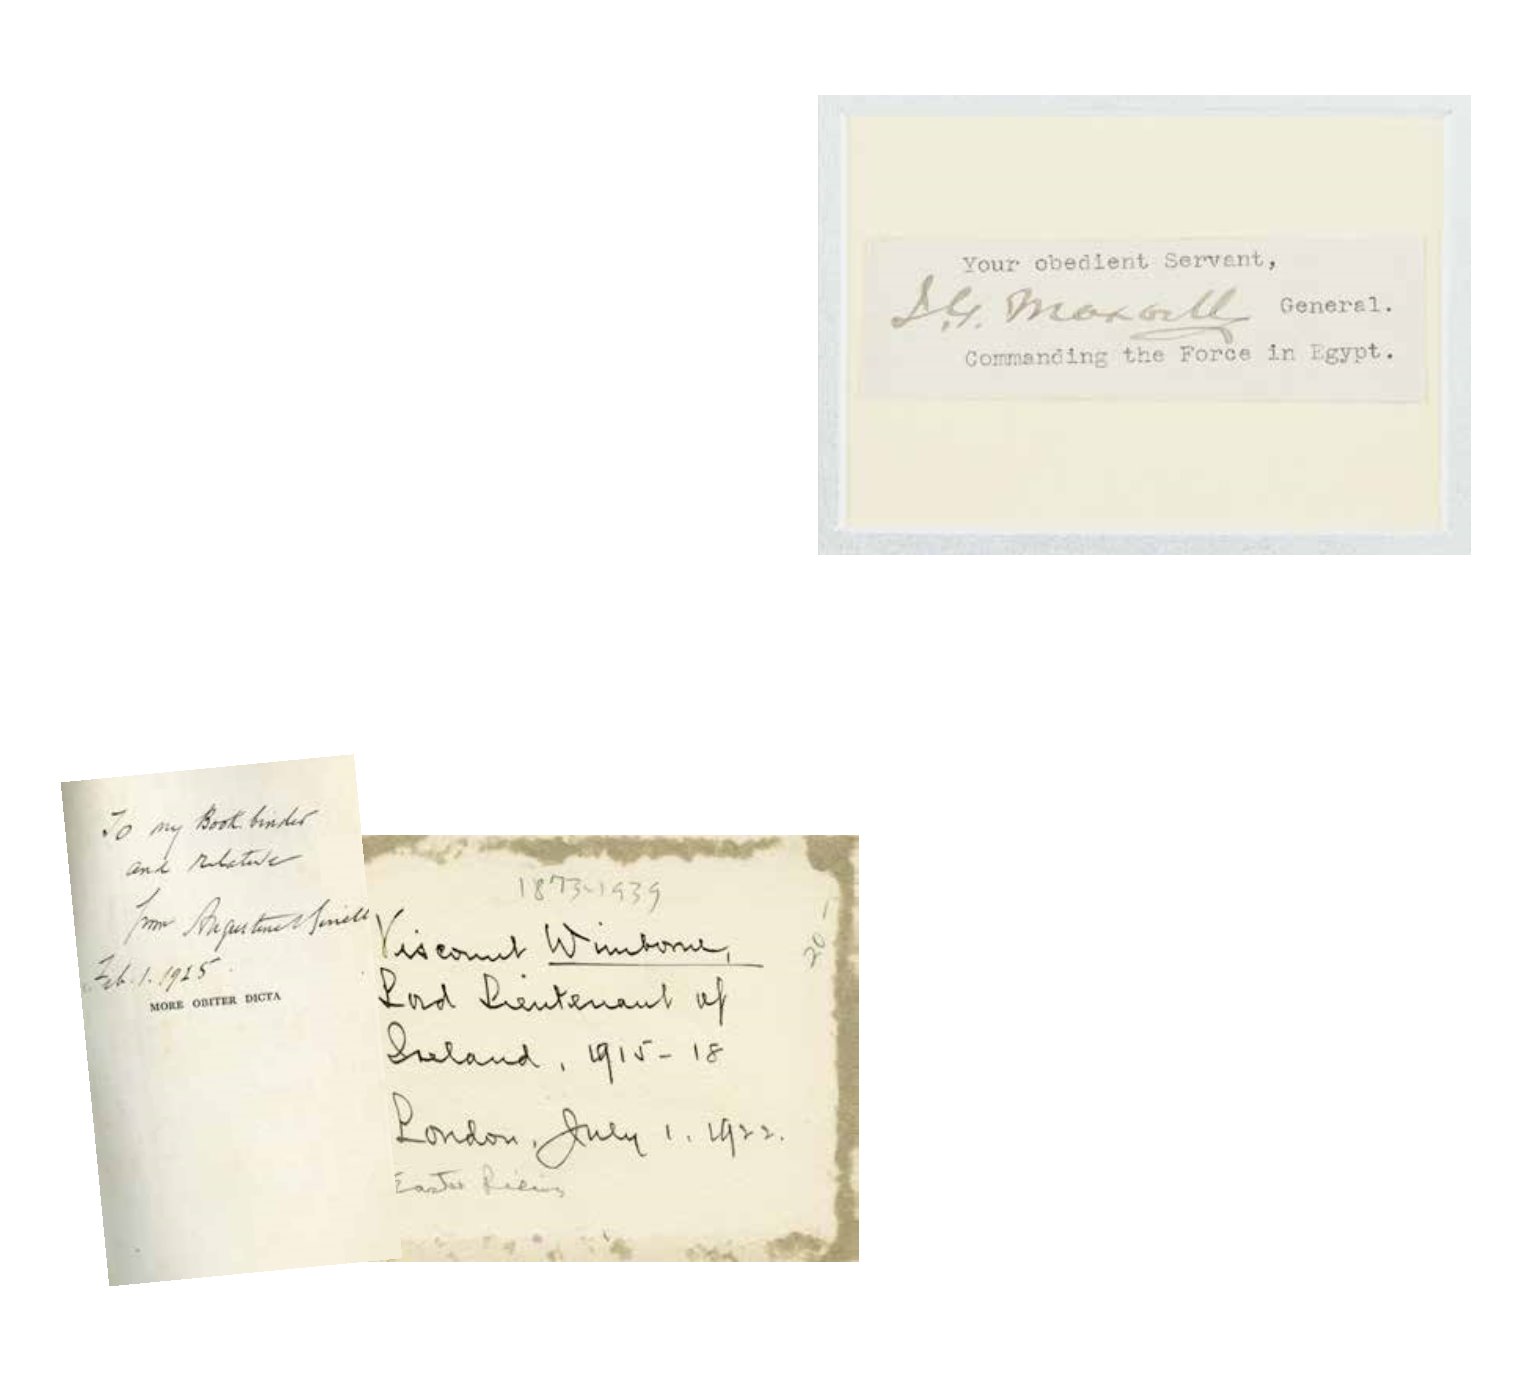 Your obedient Servant,
J.G. Maxwell General.
Commanding the Force in Egypt.
To my Book binder
and relative
from Augustine Birrell
Feb. 1. 1925.
MORE OBITER DICTA
1873-1939
20/-
Viscount Wimborne,
Lord Lieutenant of
Ireland, 1915-18
London, July 1, 1922.
Easter Rising